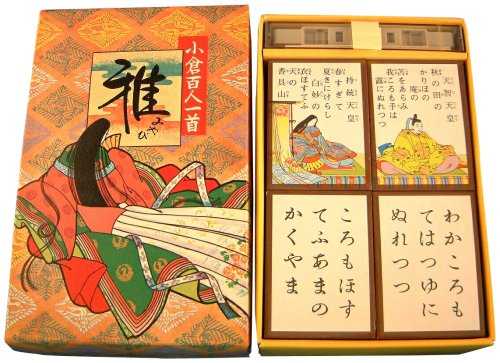 小倉百人一首
雅
みやび
天智天皇
秋の田の
かりほの
庵の
苫をあらみ
我ころも手は
露にぬれつつ
持統天皇
春すぎて
夏きにけらし
白妙の
衣ほすてふ
天の
香具山
わかころも
てはつゆに
ぬれつつ
ころもほす
てふあまの
かくやま